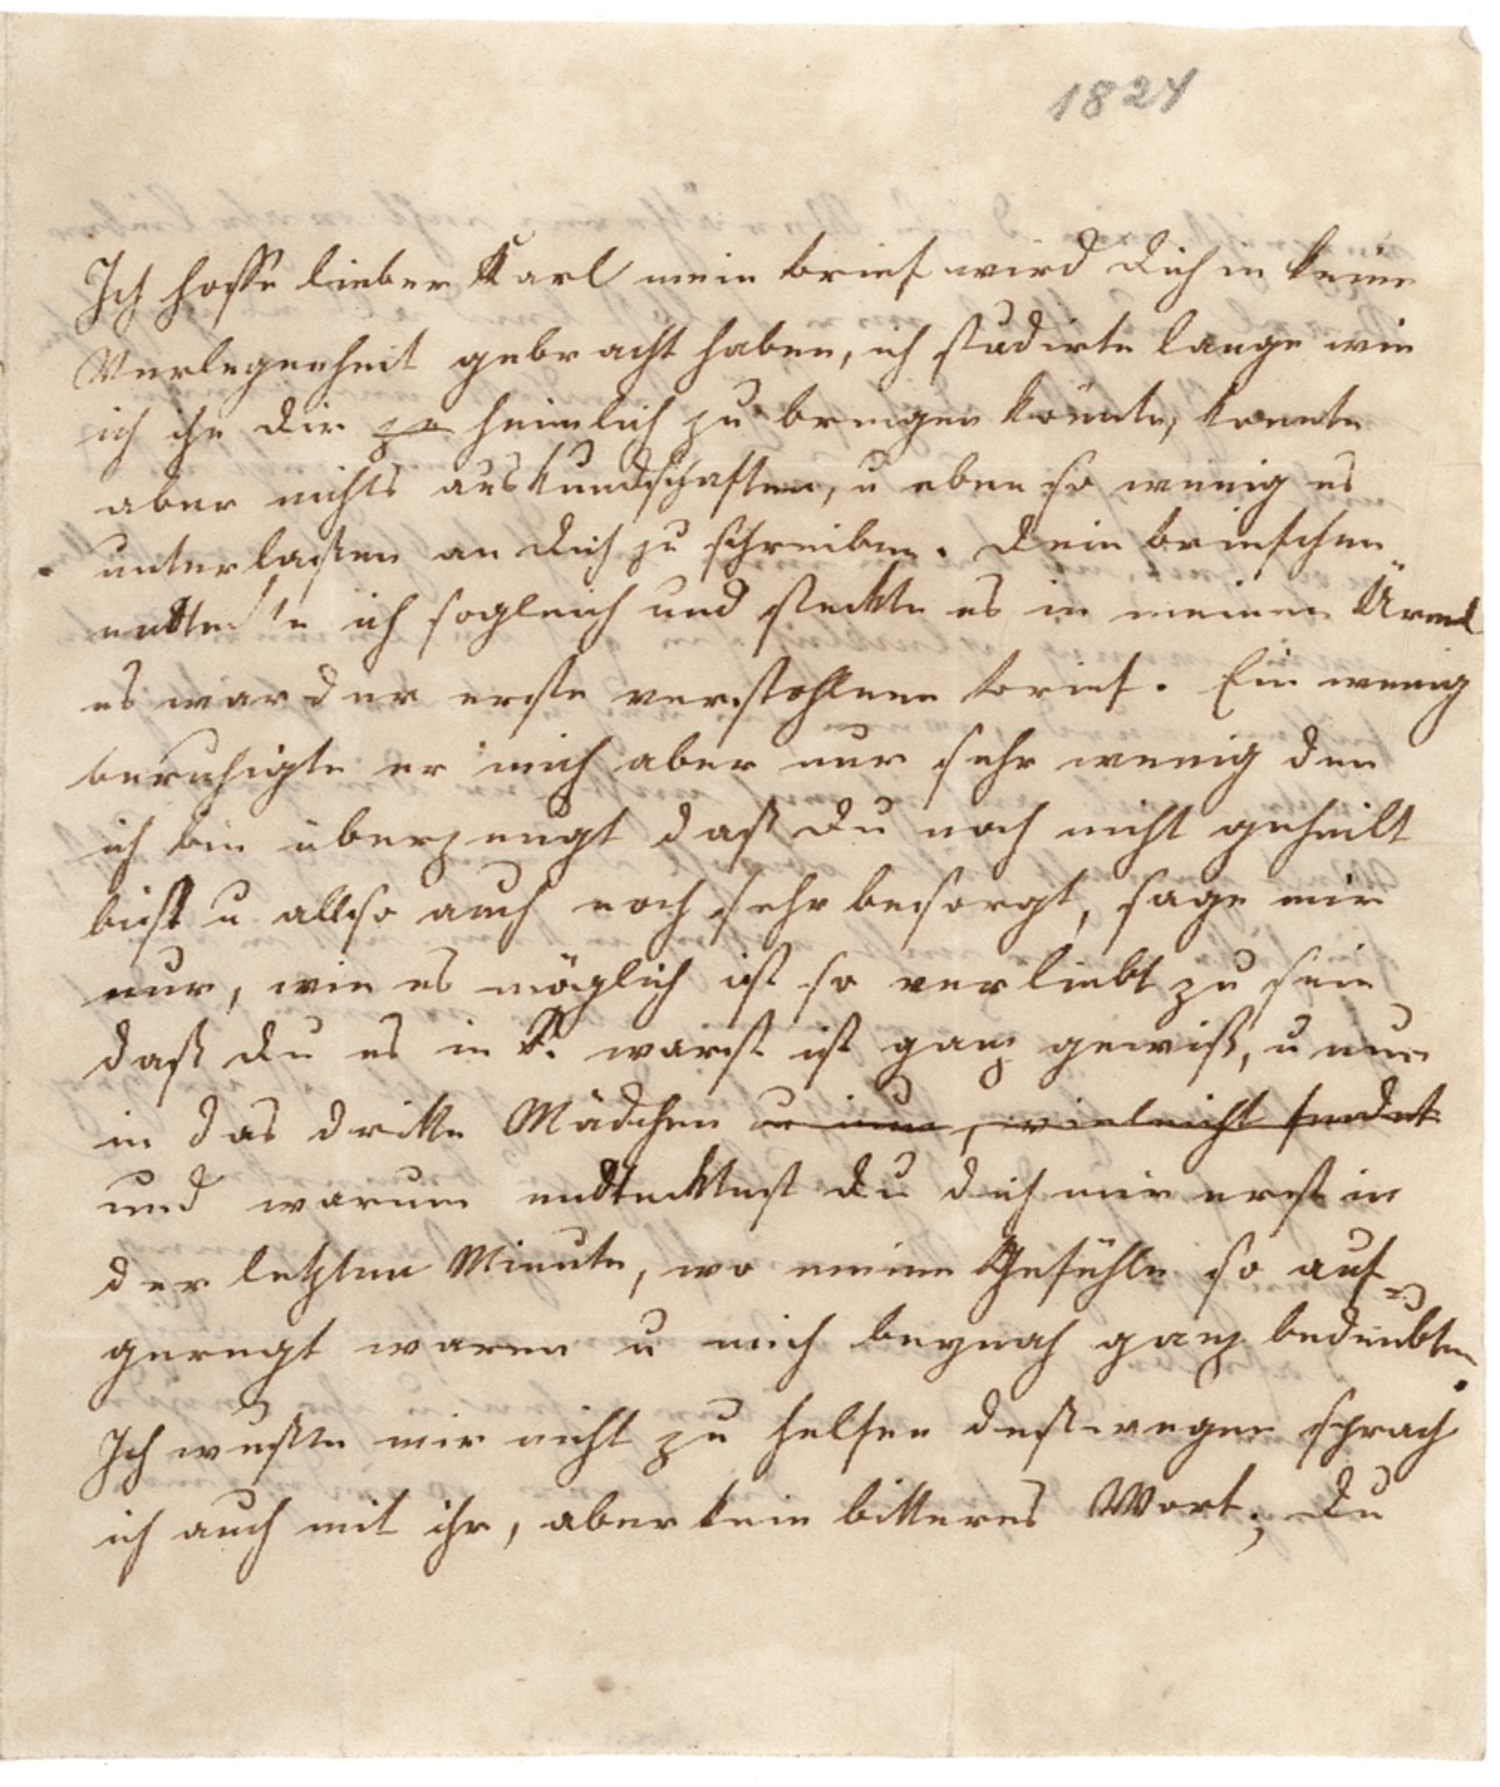 1824
Ich hoffe lieber Karl mein brief wird dich in keine
Verlegenheit gebracht haben, ich studirte lange wie
ich ihn dir zu heimlich zu bringen könnte, konnte
aber nichts auskundschaften, u eben so wenig es
unterlaßen an dich zu schreiben. dein briefchen
endteckte ich sogleich und steckte es in meinen Ärmel
es war der erste verstohlene brief. Ein wenig
beruhigte er mich aber nur sehr wenig den
ich bin überzeugt daß du noch nicht geheilt
bist u allso auch noch sehr besorgt, sage mir
nur, wie es möglich ist so verliebt zu sein
daß du es in K. warst ist ganz gewiß, u nun
in das dritte Mädchen vielleicht findet
und warum endtecktest du dich mir erst in
der letzten Minute, wo meine Gefühle so auf-
geregt waren u mich beynah ganz bedeubten.
Ich wußte mir nicht zu helfen deßwegen sprach
ich auch mit ihr, aber kein bitteres Wort; du